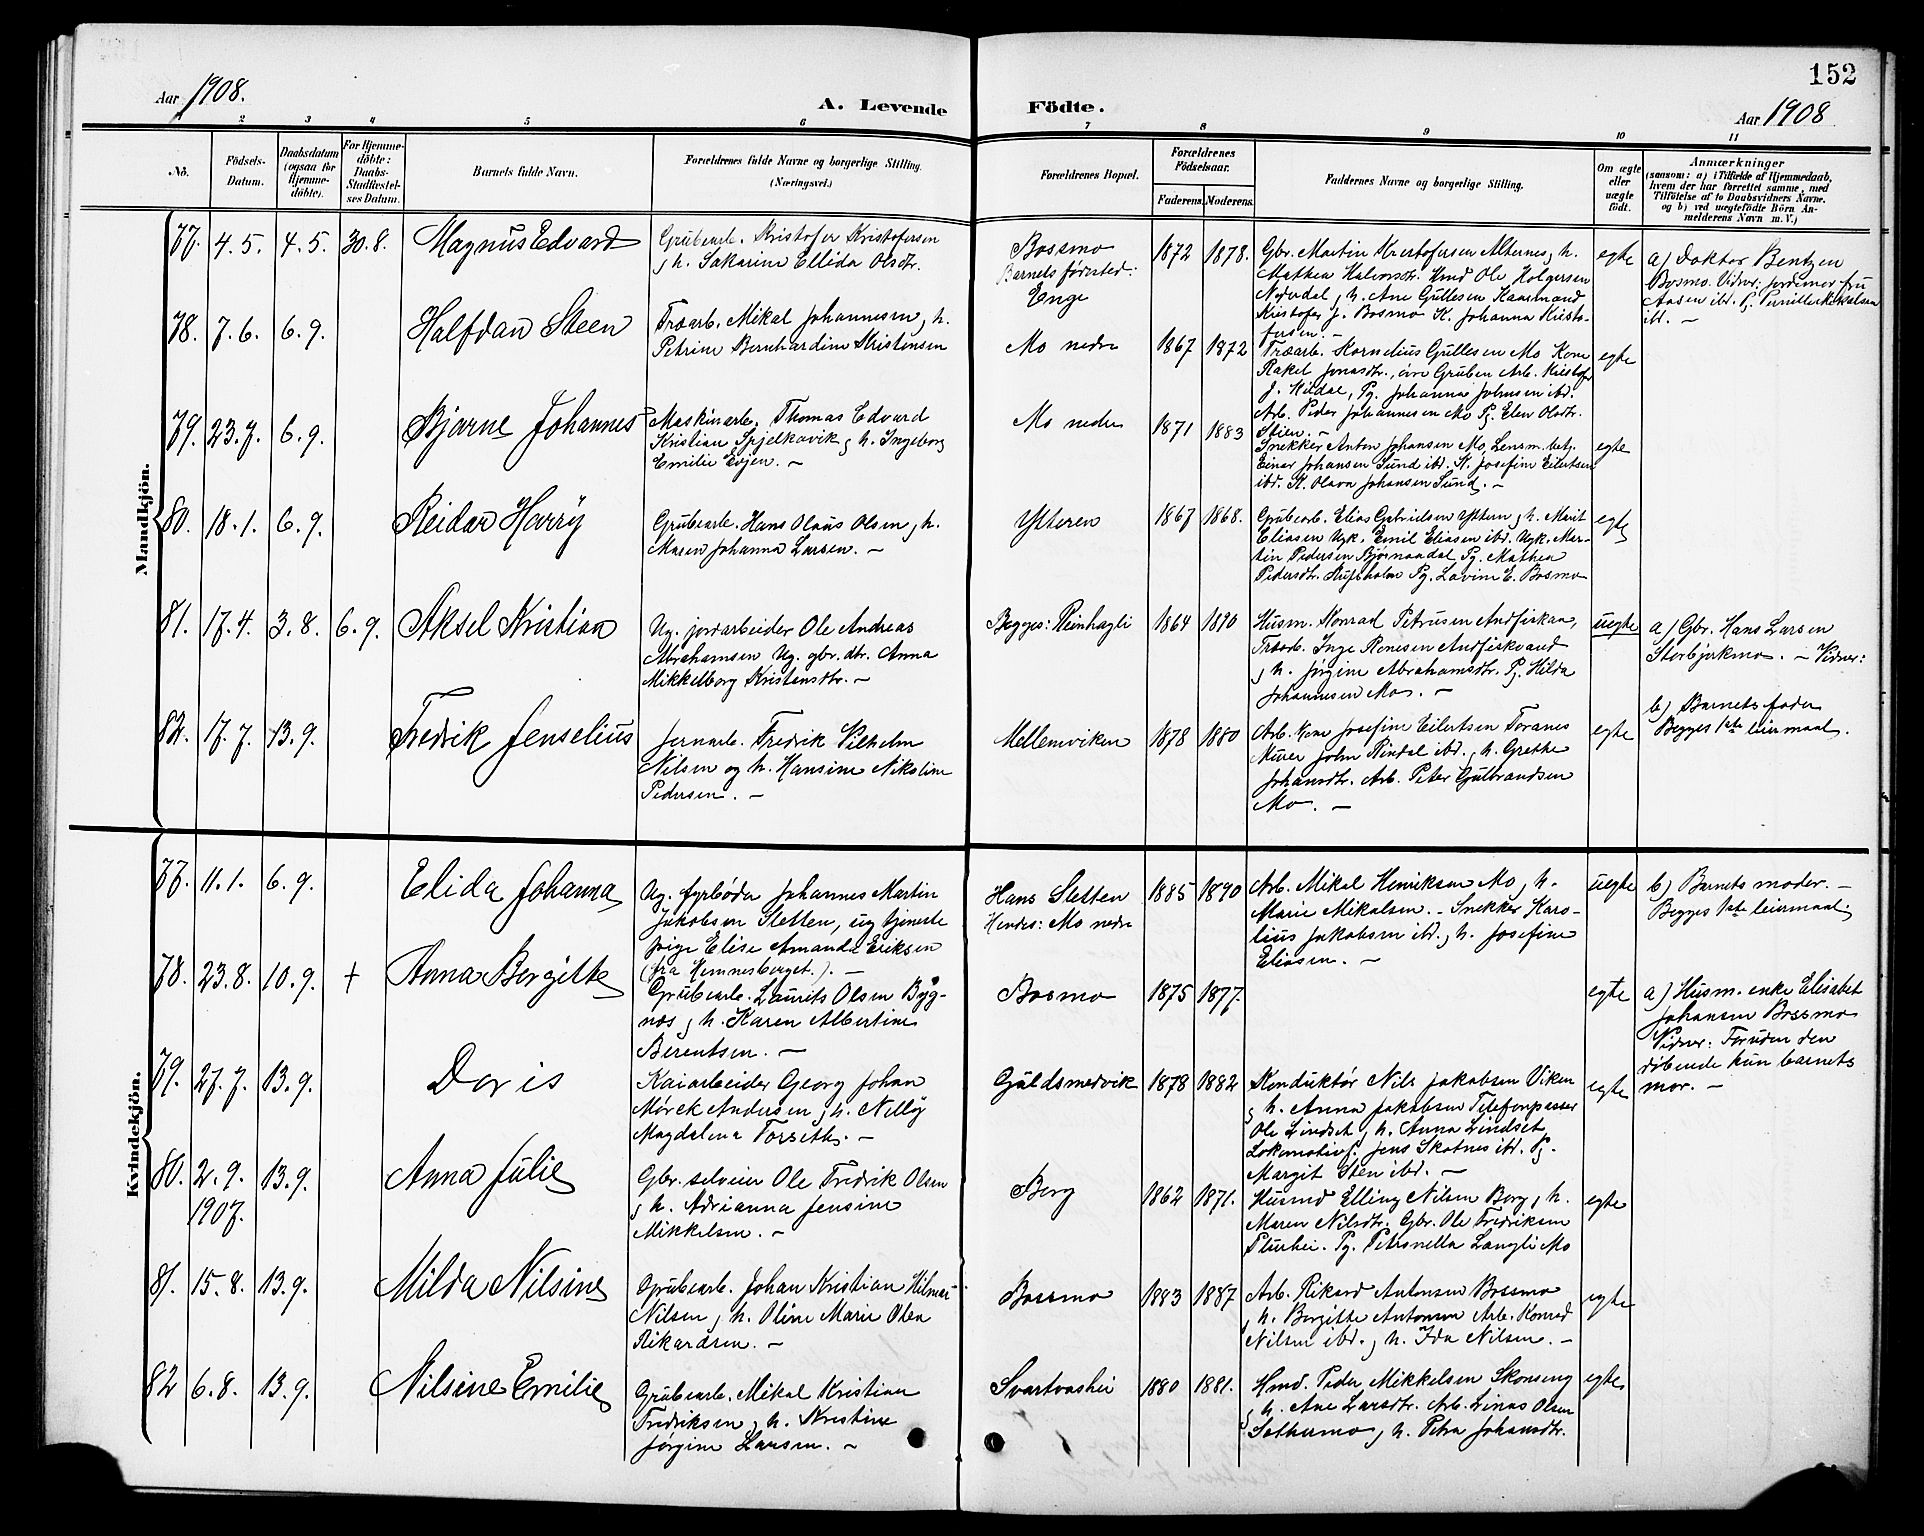 152
Aar 1908.
A. Levende Födte.
Aar 1908
2 3 4 5 6 7 8 9 10 11
No.
Födsels-Datum.
Daabsdatum (ogsaa for Hjemme-döbte).
For Hjemme-döbte: Daabs-Stadfæstel-ses Datum.
Barnets fulde Navn.
Forældrenes fulde Navne og borgerlige Stilling. (Næringsvei.)
Forældrenes Bopæl.
Forældrenes Födselsaar.
Faderens. Moderens.
Faddernes Navne og borgerlige Stilling.
Om ægte eller uægte födt.
Anmærkninger
(saasom: a) i Tilfælde af Hjemmedaab,
hvem der har forrettet samme, med
Tilföielse af to Daabsvidners Navne.
og b) ved uægtefödte Börn An-
melderens Navn m. V.)
Mandkjön.
77. 4.5. 4.5. 30.8. Magnus Edvard
Grubearb. Kristofer Kristofersen
og h. Sakarine Ellida Olsdtr.
Bossmo
Barnets fødested:
Enge
1872 1878.
Gbr. Martin Kristofersen Alternes, h.
Mathea Halvorsdtr. Hmd Ole Holgersen
Nydal, h. Ane Gullesen Kaarmand
Kristofer J. Bosmo K. Johanna Kristo-
fersen. —
egte
a) Doktor Bentzen
Bosmo. Vidner: jordemor fru
Aasen ibd. Pg. Pernille Mikkelsen
ibd. —
78. 7.6. 6.9. Halfdan Steen
Træarb. Mikal Johannesen, h.
Petrine Bernhardine Kristensen
Mo nedre
1867 1872
Træarb. Kornelius Gullesen Mo Kone
Rakel Jonasdtr., øvre Gruben Arb. Kristofer
J. Hildal, Pg. Johanna Johnsen ibd.
Arb. Peder Johannesen Mo Pg. Elen Olsdtr.
Stien. —
egte
79. 23.7. 6.9. Bjarne Johannes
Maskinarb. Thomas Edvard
Kristian Spjelkavik og h. Ingeborg
Emilie Evjen. —
Mo nedre
1871 1883
Snekker Anton Johansen Mo, Lensm. betj.
Einar Johansen Sund ibd. K. Josefine Eilertsen
ibd. K. Olava Johansen Sund. —
egte
80. 18.1. 6.9. Reidar Harry
Grubearb. Hans Olaus Olsen, h.
Maren Johanna Larsen. —
Ytteren
1867 1868.
Grubearb. Elias Gabrielsen Yttern, h. Marit
Eliasen Ugk. Emil Eliasen ibd. Ugk. Mar-
tin Pedersen Bjørnaadal Pg. Mathea
Pedersdtr. Pg. Lavine E. Bosmo
egte
81. 17.4. 3.8. 6.9. Aksel Kristian
Ug. jordarbeider Ole Andreas
Abrahamsen Ug. gbr. dtr. Anna
Mikkelborg Kristensdtr. —
Begges: Reinhagli
1864 1890
Husm. Konrad Petrusen Andfiskaa,
Træarb. Inge Ronesen Andfiskvand
og h. Jørgine Abrahamsdtr. Pg. Hilda
Johannesen Mo. —
uegte
a) Gbr. Hans Larsen
Storbjørkmo. — Vidner:
b) Barnets fader
Begges 1ste leiermaal.
82. 17.7. 13.9. Fredrik Jenselius
Jernarb. Fredrik Vilhelm
Nilsen og h. Hansine Nikoline
Pedersen. —
Mellemviken
1878 1880
Arb. Kone Josefine Eilertsen Toranes
Murer John Rindal ibd., h. Grethe
Johansdtr. Arb. Peter Gulbrandsen
Mo. —
egte
Kvindekjön.
77. 11.1. 6.9. Elida Johanna
Ug. fyrbøder Johannes Martin
Jakobsen Sletten, ug tjeneste
pige Elise Amanda Eriksen
(fra Hemnesberget.). —
Hans Sletten
Hendes: Mo nedre
1885 1890
Arb. Mikal Henriksen Mo, h.
Marie Mikalsen. – Snekker Karo-
lius Jakobsen ibd., h. Josefine
Eliasen. —
uegte
b) Barnets moder. —
Begges 1ste leiermaal.
78. 23.8. 10.9. † Anna Bergitte
Grubearb. Laurits Olsen Byg-
nes, h. Karen Albertine
Berentsen. —
Bosmo
1875 1877.
egte
a) Husm. enke Elisabet
Johansen Bossmo
Vidner: Foruden den
døbende kun barnets
mor. —
79. 27.7. 13.9. Doris
Kaiarbeider Georg Johan
Mørck Andersen, h. Nelly
Magdalena Forseth. —
Guldsmedvik
1878 1882
Konduktør Nils Jakobsen Viken
og h. Anna Jakobsen Telefonpasser
Ole Lindset, h. Anna Lindset
Lokomotivf. Jens Skotnes ibd. Pg.
Margit Sten ibd. —
egte
80. 2.9. 1907. 13.9. Anna Julie
Gbr. selveier Ole Fredrik Olsen
og h. Adrianna Jensine
Mikkelsen. —
Berg
1862 1871.
Husmd Elling Nilsen Berg, h.
Maren Nilsdtr. Gbr. Ole Fredriksen
Plurhei. Pg. Petronella Langli Mo
egte
81. 15.8. 13.9. Milda Nilsine
Grubearb. Johan Kristian Hilmar
Nilsen, h. Oline Marie Olea
Rikardsen. —
Bossmo
1883 1887
Arb. Rikard Antonsen Bossmo
, h. Bergitte Antonsen Arb. Konrad
Nilsen ibd., h. Ida Nilsen. —
egte
82 6.8. 13.9. Nilsine Emilie
Grubearb. Mikal Kristian
Fredriksen, h. Kristine
Jørgine Larsen. —
Svartvashei
1880 1881.
Hmd. Peder Mikkelsen Skonseng
og h. Ane Larsdtr. Arb. Linas Olsen
Sethermo, h. Petra Johansdtr.
egte